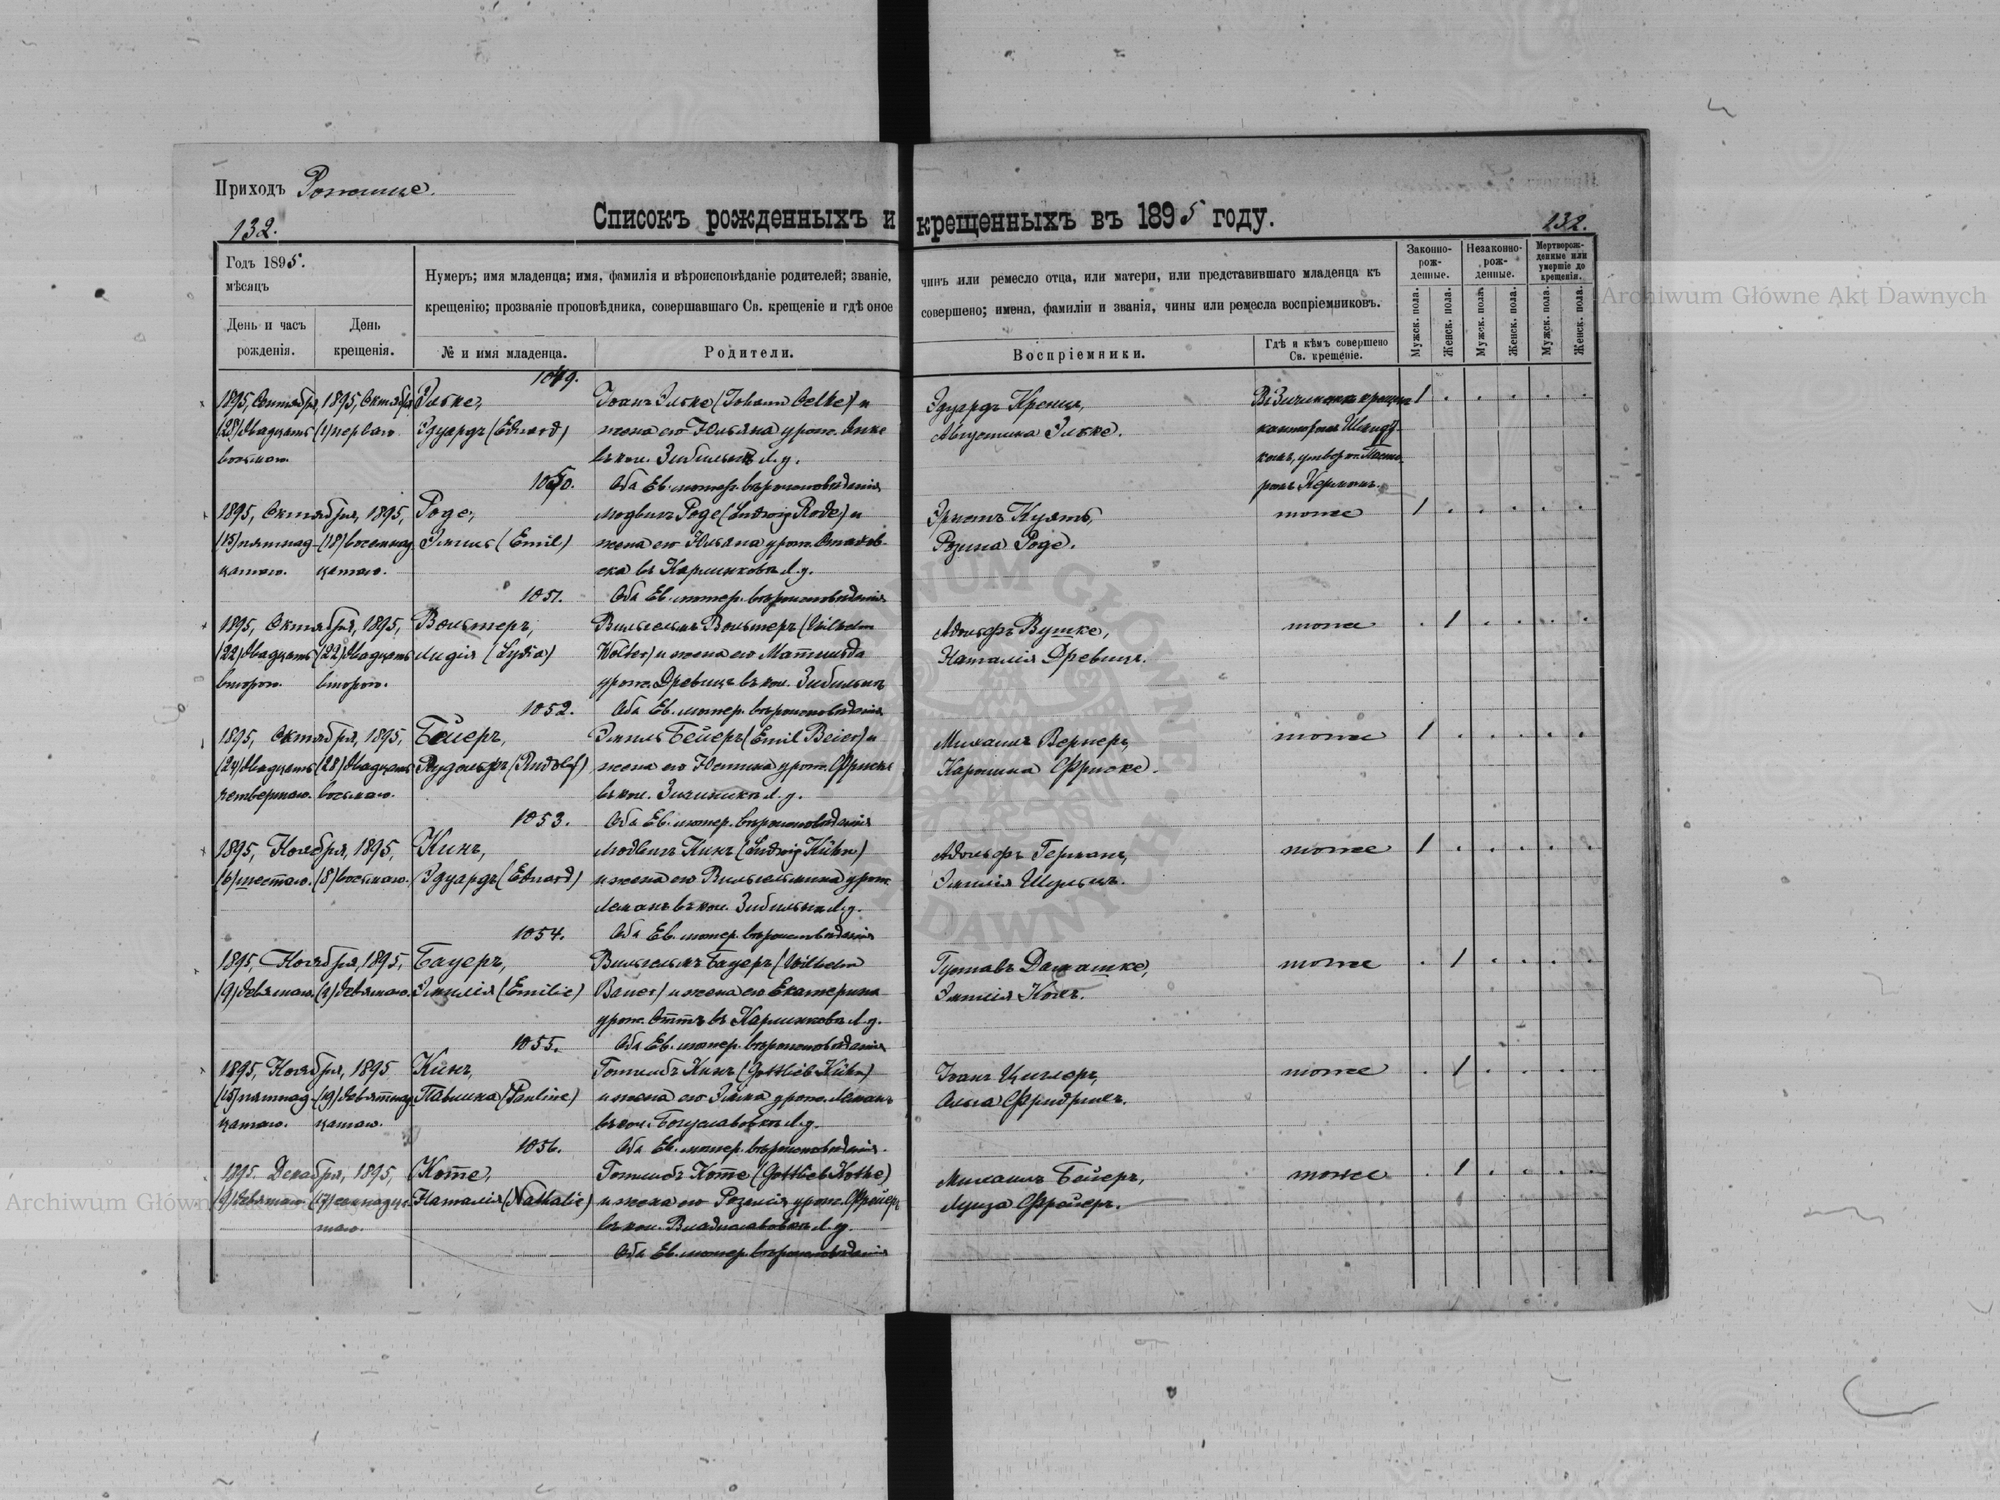 Приходъ Рожище.
132.
Списокъ рожденныхъ и крещенныхъ въ 1895 году.
132.
Годъ 1895.
мѣсяцъ
День и часъ рожденія.
День крещенія.
Нумеръ; имя младенца; имя, фамилія и вѣроисповѣданіе родителей; званіе, чинъ или ремесло отца, или матери, или представившаго младенца къ
крещенію; прозваніе проповѣдника, совершавшаго Св. крещеніе и гдѣ оное совершено; имена, фамиліи и званія, чины или ремесла воспріемниковъ.
№ и имя младенца.
Родители.
Воспріемники.
Гдѣ и кѣмъ совершено Св. крещеніе.
Законно-рож-денные.
Незаконно-рож-денные.
Мертворож-денные или умершіе до крещенія.
Мужск. пола.
Женск. пола.
Мужск. пола.
Женск. пола.
Мужск. пола.
Женск. пола.
1049.
1895, 1895, Октября Эльке, Іоанъ Эльке (Johann Oelke) и Эдуардъ 1
(28) двадцать (1) перваго Эдуардъ (Eduard) жена его Юльяна урож. Августина Эльке.
восьмаго. въ кол.
1050. Оба Ев. лютер. вѣроисповѣданія
1895, Октября, 1895, Роде, Людвигъ Роде (Ludwig Rode) и Эрнстъ тоже 1
(15) пятнад- (18) восемнад- Эмиль (Emil) жена его Юльяна урож. Розина Роде.
цатаго. цатаго.
1051. Оба Ев. лютер. вѣроисповѣданія
1895, Октября, 1895, Вольтеръ, Вильгельмъ Вольтеръ (Wilhelm Адольфъ Вутке, тоже 1
(22) двадцать (22) двадцать Лидія (Lydia) Wolter) и жена его Матильда Наталія Древицъ.
втораго. втораго. урож. Древицъ въ кол.
1052. Оба Ев. лютер. вѣроисповѣданія
1895, Октября, 1895, Бейеръ, Эмиль Бейеръ (Emil Beier) и Михаилъ Вернеръ, тоже 1
(24) двадцать (28) двадцать Рудольфъ (Rudolf) жена его Юстина урож. Фриске Каролина Фриске.
четвертаго. восьмаго. въ кол.
1053. Оба Ев. лютер. вѣроисповѣданія
1895, Ноября, 1895, Кинъ, Людвигъ Кинъ (Ludwig Kühn) Адольфъ Германъ, тоже 1
(6) шестаго. (8) восьмаго. Эдуардъ (Eduard) и жена его Вильгельмина урож. Эмилія Шульцъ.
Леманъ въ кол.
1054. Оба Ев. лютер. вѣроисповѣданія
1895, Ноября, 1895, Бауеръ, Вильгельмъ Бауеръ (Wilhelm Густавъ Домашке, тоже 1
(9) девятаго. девятаго. Эмилія (Emilie) Bauer) и жена его Екатерина Эмилія
урож. Оттъ въ
1055. Оба Ев. лютер. вѣроисповѣданія
1895, Ноября, 1895 Кинъ, Готлибъ Кинъ (Gottlieb Kühn) Іоанъ Циглеръ, тоже 1
(15) пятнад- (19) девятнад- Павлина (Pauline) и жена его Эмма урож. Леманъ Ольга Фридрихъ.
цатаго. цатаго. въ кол. Богуславовка
1056. Оба Ев. лютер. вѣроисповѣданія.
1895. Декабря, 1895, Котте, Готлибъ Котте (Gottlieb Kothe) Михаилъ Бейеръ, тоже 1
(9) девятаго Наталія (Nathalie) и жена его Розалія урож. Фрейеръ Луиза Фрейеръ.
таго. въ кол. Владиславовка
Оба Ев. лютер. вѣроисповѣданія
Archiwum Główne Akt Dawnych
Archiwum Główne Akt Dawnych